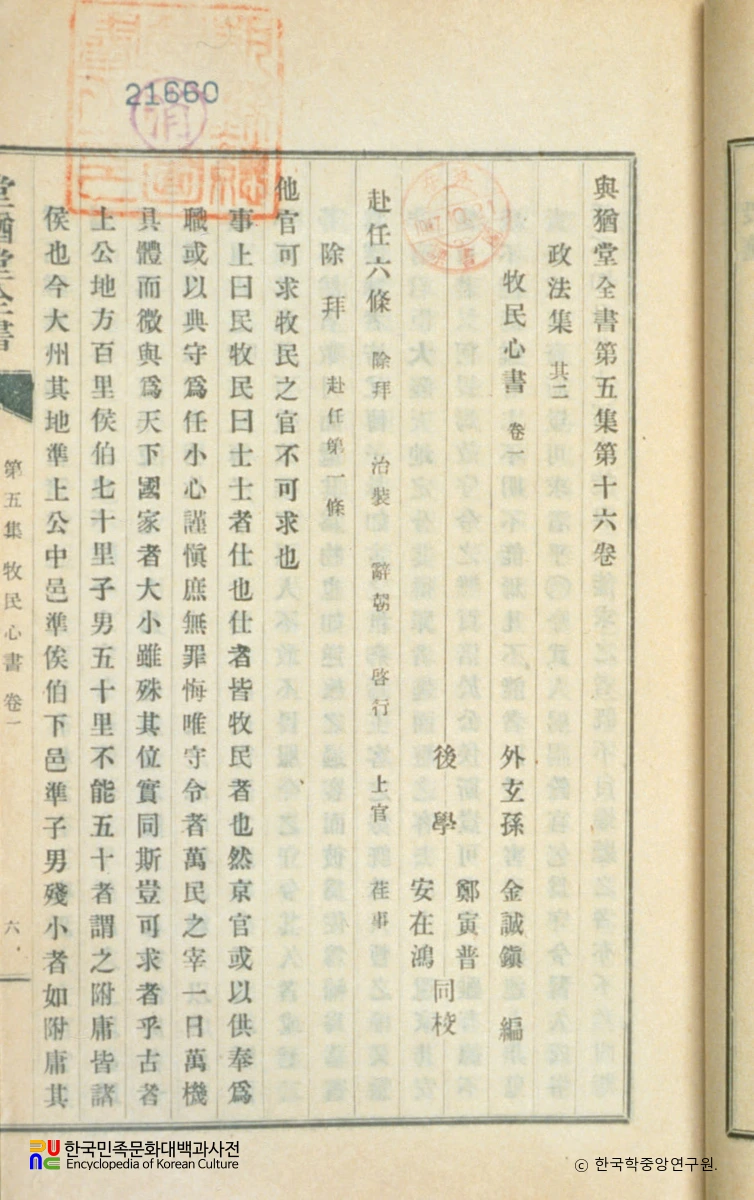 21660
消
與猶堂全書第五集第十六卷
政法集 其二
牧民心書 卷一
外玄孫 金誠鎭 編
後學 鄭寅普 安在鴻 同校
赴任六條 除拜 治裝 辭朝 啓行 上官 莅事
除拜 赴任第一條
他官可求牧民之官不可求也
事上曰民牧民曰士士者仕也仕者皆牧民者也然京官或以供奉爲
職或以典守爲任小心謹愼庶無罪悔唯守令者萬民之宰一日萬機
具體而微與爲天下國家者大小雖殊其位實同斯豈可求者乎古者
上公地方百里侯伯七十里子男五十里不能五十者謂之附庸皆諸
侯也今大州其地準上公中邑準侯伯下邑準子男殘小者如附庸其
堂猶堂全書
第五集 牧民心書 卷一
六
한국민족문화대백과사전
Encyclopedia of Korean Culture
ⓒ 한국학중앙연구원.